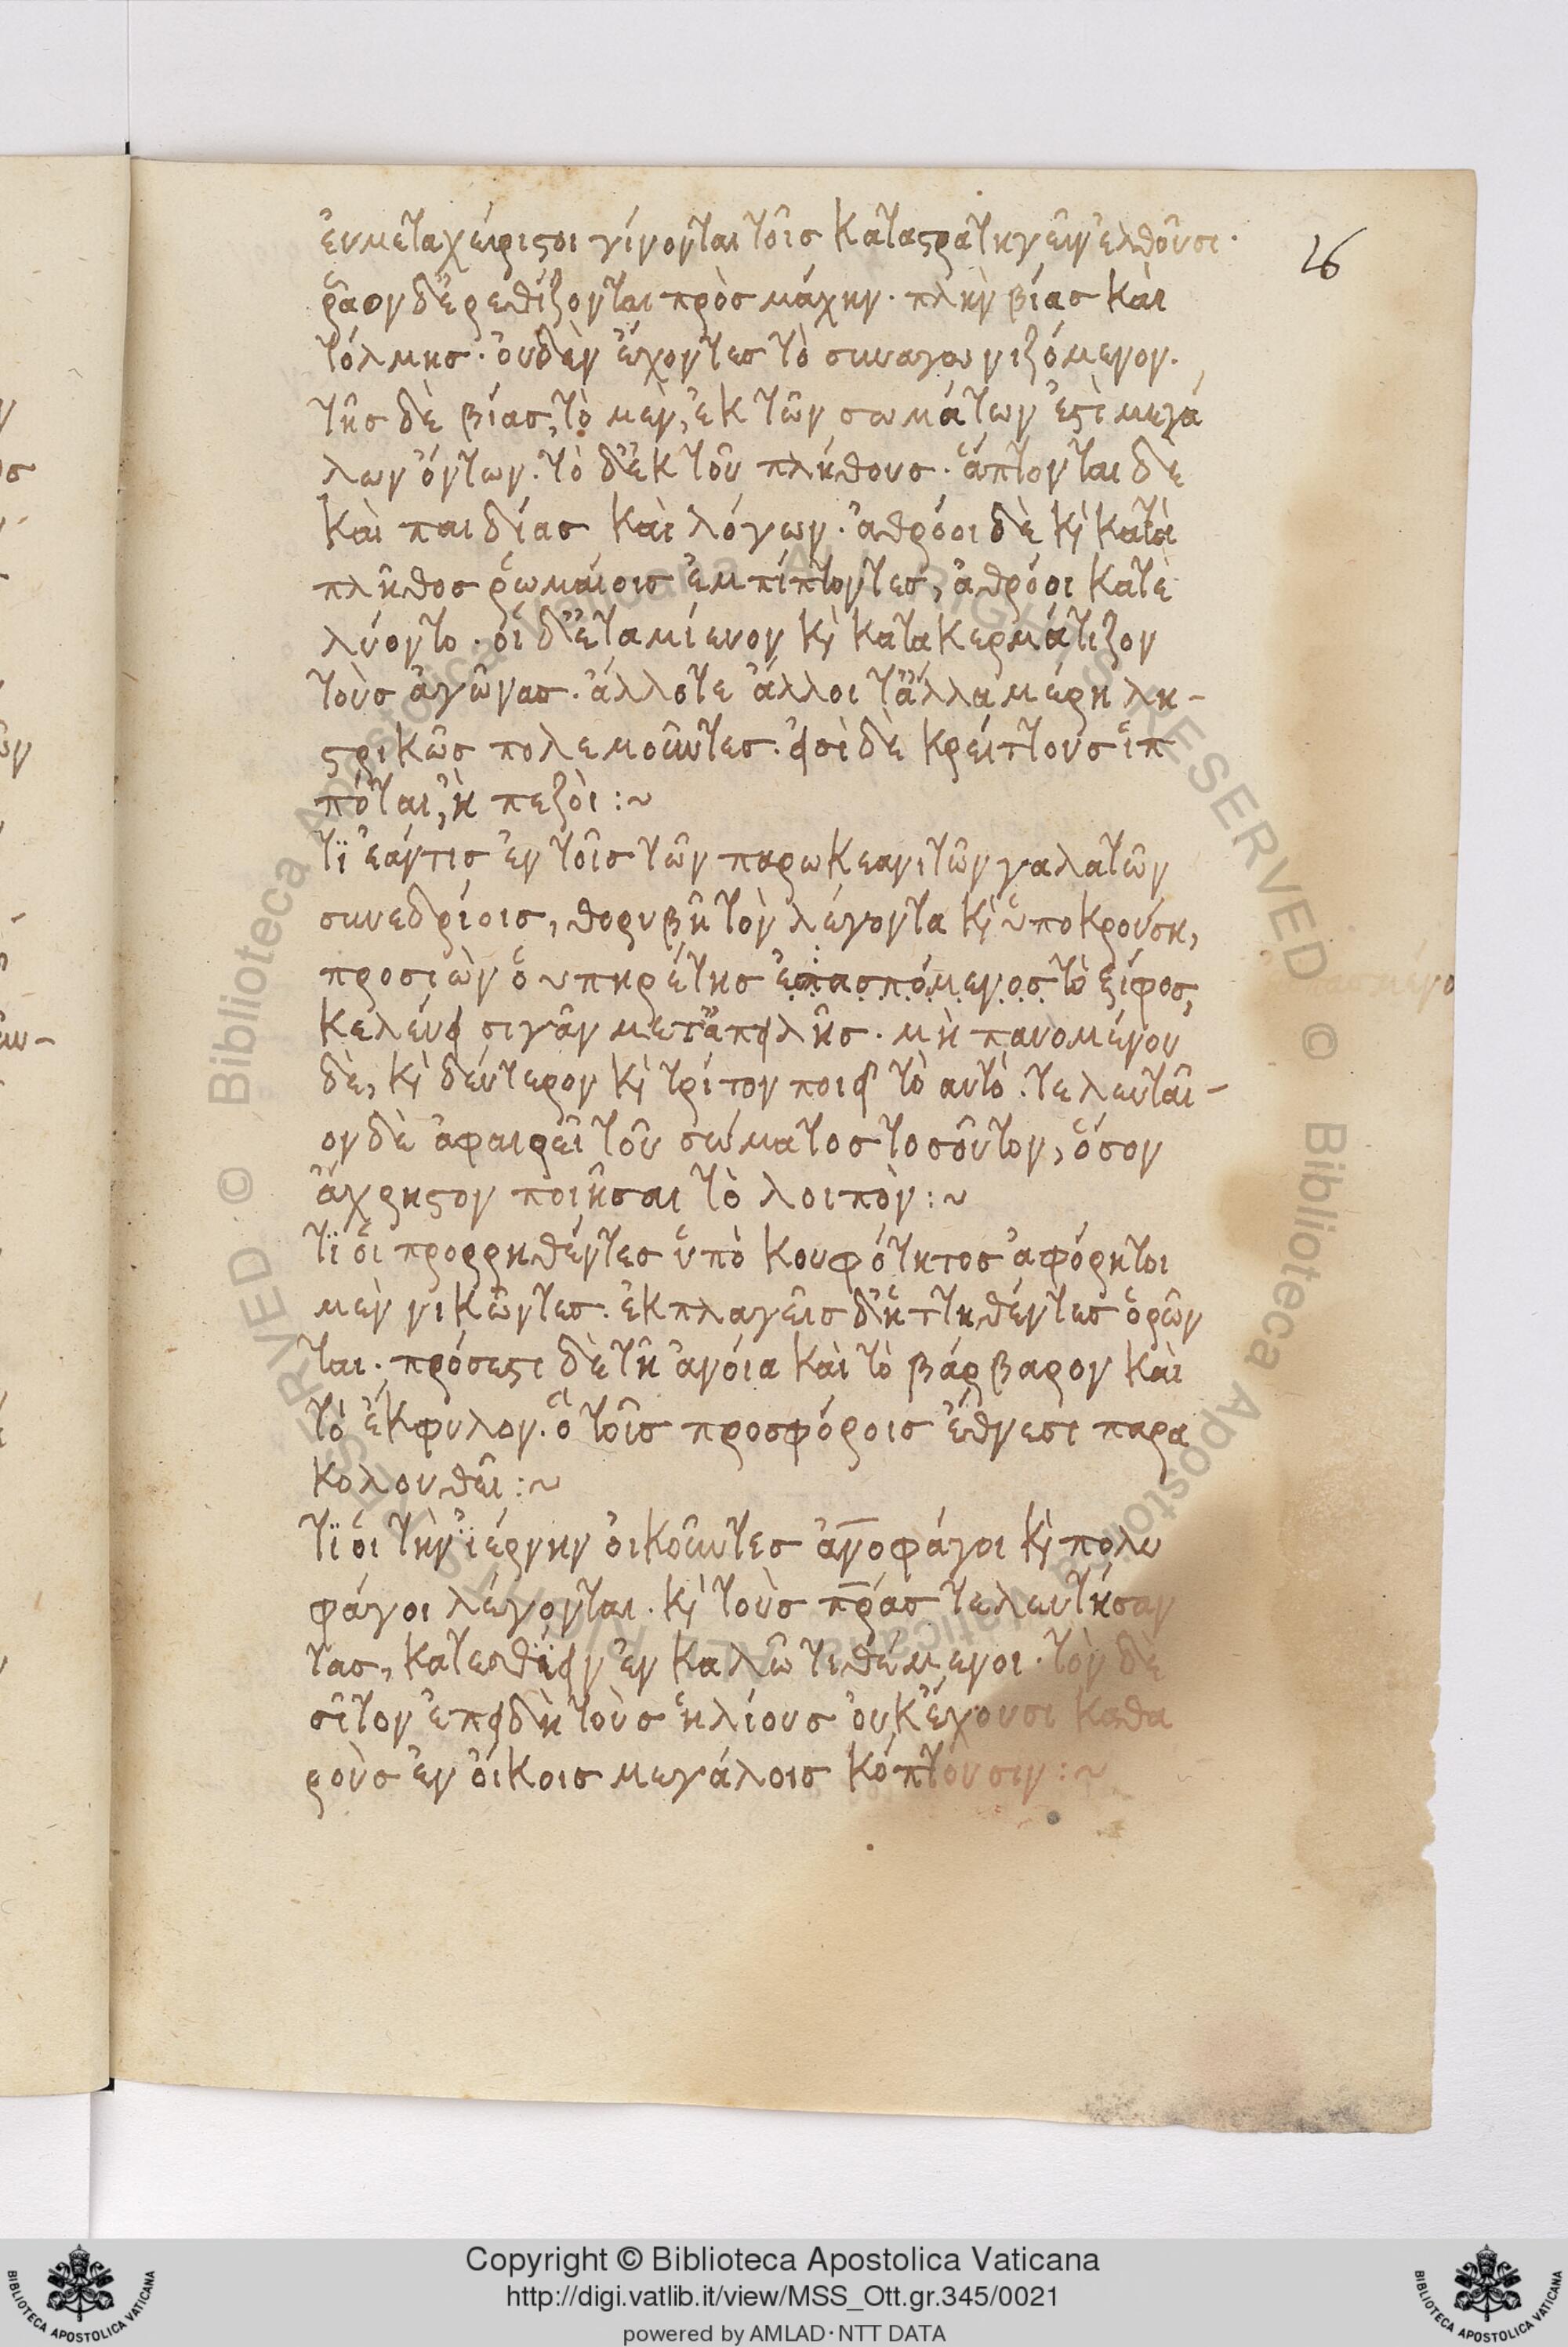 26
ἐυμεταχείριστοι γίνονται τοῖς καταστρατηγεῖν ἐλθοῦσι·
ῥᾶον δ' ἐρεθίζονται πρὸς μάχην· πλὴν βίας καὶ
τόλμης· ὀυδὲν ἔχοντες τὸ συναγωνιζόμενον.
τῆς δὲ βίας, τὸ μὲν, ἐκ τῶν σωμάτων ἐστὶ μεγά
λων ὄντων. τὸ δ' ἐκ τοῦ πλήθους· ἅπτονται δε
καὶ παιδίας καὶ λόγων· ἀθρόοι δὲ κὶ κατὰ
πλῆθος ῥωμαίοις ἐμπίπτοντες, ἀθρόοι κατε
λύοντο· οἱ δ' ἐταμίευον κὶ κατακερμάτιζον
τοὺς ἀγῶνας· ἄλλοτε ἄλλοι τἆλλα μέρη λη-
στρικῶς πολεμοῦντες· εἰσὶ δὲ κρείττους ἱπ
πόται, ἢ πεζοὶ :~
τϊ ἐάν τις ἐν τοῖς τῶν παρωκεανιτῶν γαλατῶν
συνεδρίοις, θορυβῆ τὸν λέγοντα κὶ ὑποκρούση,
προσιὼν ὁ υπηρέτης ἐπασπόμενος τὸ ξίφος,
κελεύει σιγᾶν μετ' ἀπειλῆς· μὴ παυομένου
δὲ, κὶ δεύτερον κὶ τρίτον ποιεῖ τὸ αυτὸ· τελευταῖ-
ον δὲ ἀφαιρεῖ τοῦ σώματος τοσοῦτον, ὅσον
ἄχρηστον ποιῆσαι τὸ λοιπὸν :~
τϊ ὁι προρρηθέντες ὑπὸ κουφότητος ἀφόρητοι
μὲν νικῶντες. ἐκπλαγεῖς δ' ἡττηθέντες ὁρῶν
ται· πρόσεστι δὲ τῆ ἀνόια καὶ τὸ βάρβαρον καὶ
τὸ ἔκφυλον. ὃ τοῖς προσφόροις ἔθνεσι παρα
κολουθεῖ :~
τϊ ὁι τὴν ϊέρνην ὀικοῦντες ἀν̅οφάγοι κὶ πολυ
φάγοι λέγονται· κὶ τοὺς π̅ράς τελευτήσαν
τας, κατεσθίειν ἐν καλῶ τιθέμενοι· τὸν δὲ
σῖτον ἐπειδὴ τοὺς ἡλίους ὀυκ ἔχουσι καθα
ροὺς ἐν ὄικοις μεγάλοις κόπτουσιν :~
Copyright © Biblioteca Apostolica Vaticana
http://digi.vatlib.it/view/MSS_Ott.gr.345/0021
powered by AMLAD·NTT DATA